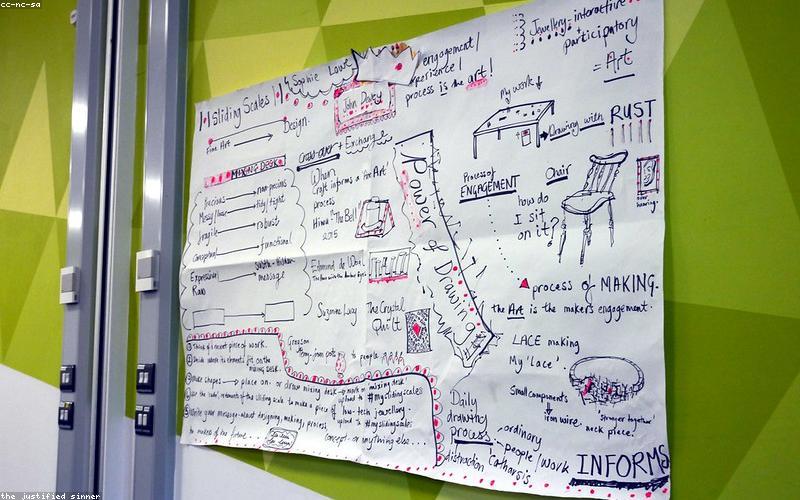 cc-nc-sa
Sliding Scales
Sophie Lowe
Fine Art
Design.
MIXING DESK
Precious
non-precious
Messy/loose
tidy/tight
fragile
robust
Conceptual
functional
Expressive
Raw
message
John Dewey
engagement/
experience/
process is the art!
Jewellery - interactive
participatory
= Art
Cross-over + Exchange
When
Craft informs a 'Fine Art'
process
2015
Edmund de Waal
The Crystal
Quilt
Power of Drawing
My work
Drawing with RUST
Process of
ENGAGEMENT
Chair
how do
I sit
on it?
process of MAKING.
the Art is the maker's engagement.
LACE making
My 'Lace'.
Small components
iron wire.
'Stronger together'
neck piece.
Think of a recent piece of work.
Decide where its elements fit on the
MIXING DESK.
Make shapes place on or draw mixing desk
upload to #myslidingscales
Use the elements of the sliding scale to make a piece of low-tech jewellery.
upload to #myslidingscales
Write your message about designing, making, process
concept - or anything else...
to people
Daily
drawing
process
ordinary
people/work
distraction catharsis
INFORMS
the justified sinner